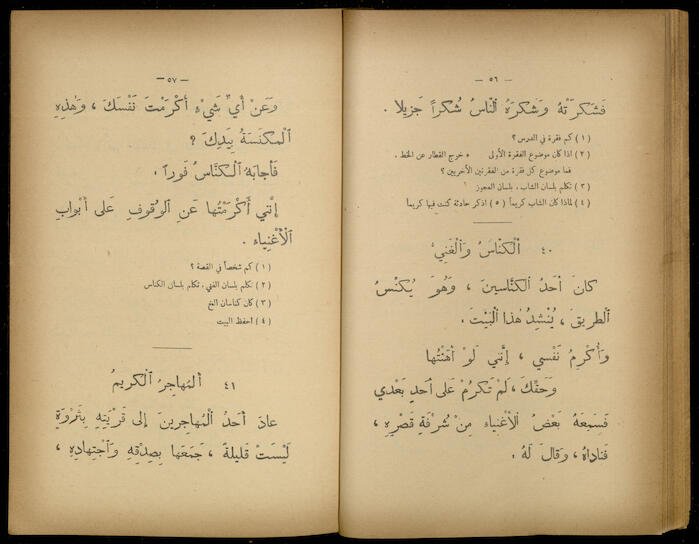 — ٥٦ —
فَشَكَرَتْهُ وَشَكَرَهُ ٱلنَّاسُ شُكْراً جَزِيلاً .
( ١ ) كم فقرة في الدرس ؟
( ٢ ) اذا كان موضوع الفقرة الأولى « خرج القطار عن الخط .
فما موضوع كل فقرة من الفقرتين الأخريين ؟
( ٣ ) تكلم بلسان الشاب ، بلسان العجوز
( ٤ ) لماذا كان الشاب كريماً ( ٥ ) اذكر حادثة كنت فيها كريماً
٤٠ ٱلْكَنَّاسُ وَٱلْغَنِيُّ
كَانَ أَحَدُ ٱلْكَنَّاسِينَ ، وَهُوَ يَكْنُسُ
ٱلطَّرِيقَ ، يُنْشِدُ هٰذَا ٱلْبَيْتَ .
وَأُكْرِمُ نَفْسِي ، إِنَّنِي لَوْ أَهَنْتُهَا
وَحَقِّكَ ، لَمْ تَكْرُمْ عَلَى أَحَدٍ بَعْدِي
فَسَمِعَهُ بَعْضُ ٱلْأَغْنِيَاءِ مِنْ شُرْفَةِ قَصْرِهِ ،
فَنَادَاهُ ، وَقَالَ لَهُ .
— ٥٧ —
وَعَنْ أَيِّ شَيْءٍ أَكْرَمْتَ نَفْسَكَ ، وَهٰذِهِ
ٱلْمِكْنَسَةُ بِيَدِكَ ؟
فَأَجَابَهُ ٱلْكَنَّاسُ فَوْراً .
إِنَّنِي أَكْرَمْتُهَا عَنِ ٱلْوُقُوفِ عَلَى أَبْوَابِ
ٱلْأَغْنِيَاءِ .
( ١ ) كم شخصاً في القصة ؟
( ٢ ) تكلم بلسان الغني ، تكلم بلسان الكناس
( ٣ ) كان كناسان الخ
( ٤ ) احفظ البيت
٤١ ٱلْمُهَاجِرُ ٱلْكَرِيمُ
عَادَ أَحَدُ ٱلْمُهَاجِرِينَ إِلَى قَرْيَتِهِ بِثَرْوَةٍ
لَيْسَتْ قَلِيلَةً ، جَمَعَهَا بِصِدْقِهِ وَٱجْتِهَادِهِ ،